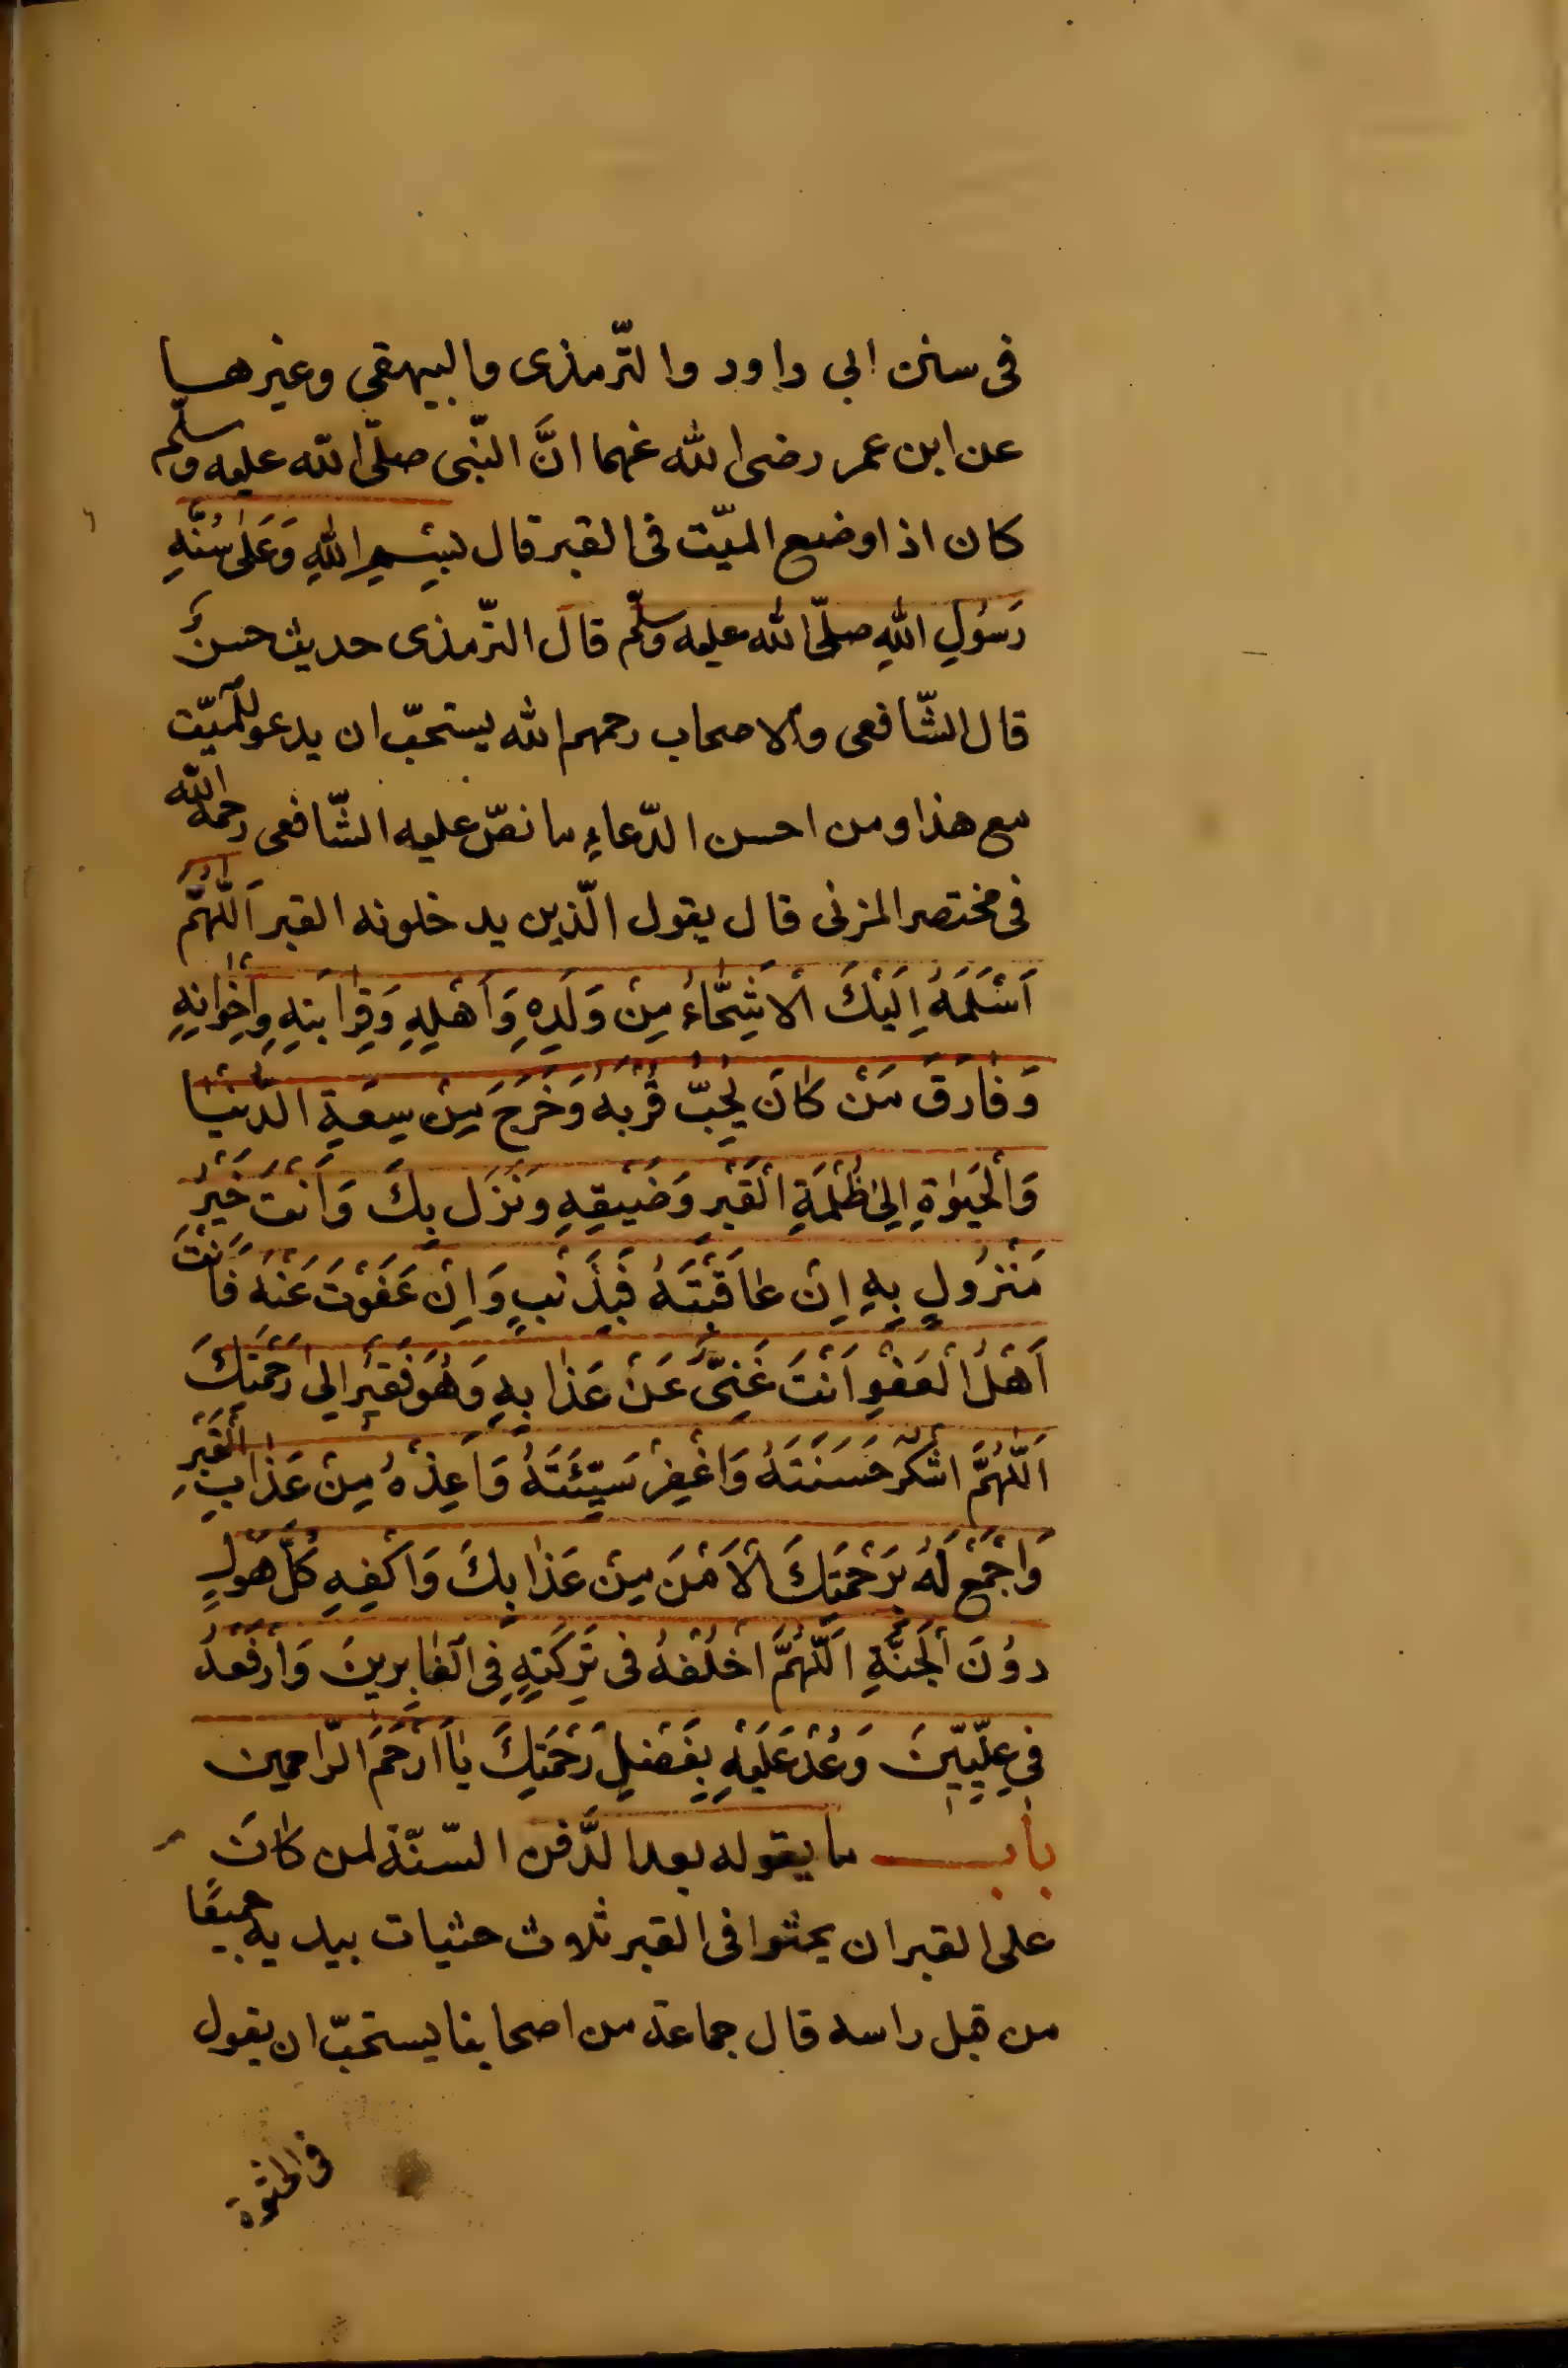 فى سنن ابى داود والتّرمذى والبيهقى وغيرها
عن ابن عمر رضى الله عنهما انَّ النّبى صلّى الله عليه وسلّم
كان اذا وضع الميّت فى القبر قال بِسْمِ اللهِ وَعَلٰى سُنَّةِ
رَسُولِ اللهِ صلّى الله عليه وسلّم قال التّرمذى حديث حسنٌ
قال الشّافعى والاصحاب رحمهم الله يستحبّ ان يدعو للميّت
مع هذا ومن احسن الدّعاءِ ما نصّ عليه الشّافعى رحمه الله
فى مختصر المزنى قال يقول الّذين يدخلونه القبر اَللّٰهُمَّ
اَسْلَمَهُ اِلَيْكَ الْاَشِحَّاءُ مِنْ وَلَدِهِ وَاَهْلِهِ وَقِرٰابَتِهِ وِاِخْوٰانِهِ
وَفٰارَقَ مَنْ كٰانَ يُحِبُّ قُرْبَهُ وَخَرَجَ مِنْ سِعَةِ الدُّنْيٰا
وَالْحَيٰوةِ اِلىٰ ظُلْمَةِ الْقَبْرِ وَضَيْقِهِ وَنَزَلَ بِكَ وَاَنْتَ خَيْرُ
مَنْزُولٍ بِهِ اِنْ عٰاقَبْتَهُ فَبِذَنْبٍ وَاِنْ عَفَوْتَ عَنْهُ فَاَنْتَ
اَهْلُ الْعَفْوِ اَنْتَ غَنِىٌّ عَنْ عَذٰابِهِ وَهُوَ فَقيرٌ اِلىٰ رَحْمَتِكَ
اَللّٰهُمَّ اشْكُرْ حَسَنَتَهُ وَاغْفِرْ سَيِّئَتَهُ وَاَعِذْهُ مِنْ عَذٰابِ الْقَبْرِ
وَاجْمَعْ لَهُ بِرَحْمَتِكَ الْاَمْنَ مِنْ عَذٰابِكَ وَاكْفِهِ كُلَّ هَوْلٍ
دوُنَ الْجَنَّةِ اَللّٰهُمَّ اخْلُفْهُ فى تَرِكَتِهِ فِى الْغٰابِرينَ وَارْفَعْهُ
فى عِلِّيِّينَ وَعُدْ عَلَيْهِ بِفَضْلِ رَحْمَتِكَ يٰا اَرْحَمَ الرّاحمين
بٰاب ما يقوله بعد الدَّفن السّنّة لمن كٰانَ
على القبر ان يحثوا فى القبر ثلاث حثيات بيديه جميعًا
من قبل راسه قال جماعة من اصحابنا يستحبّ ان يقول
فى الحثوة